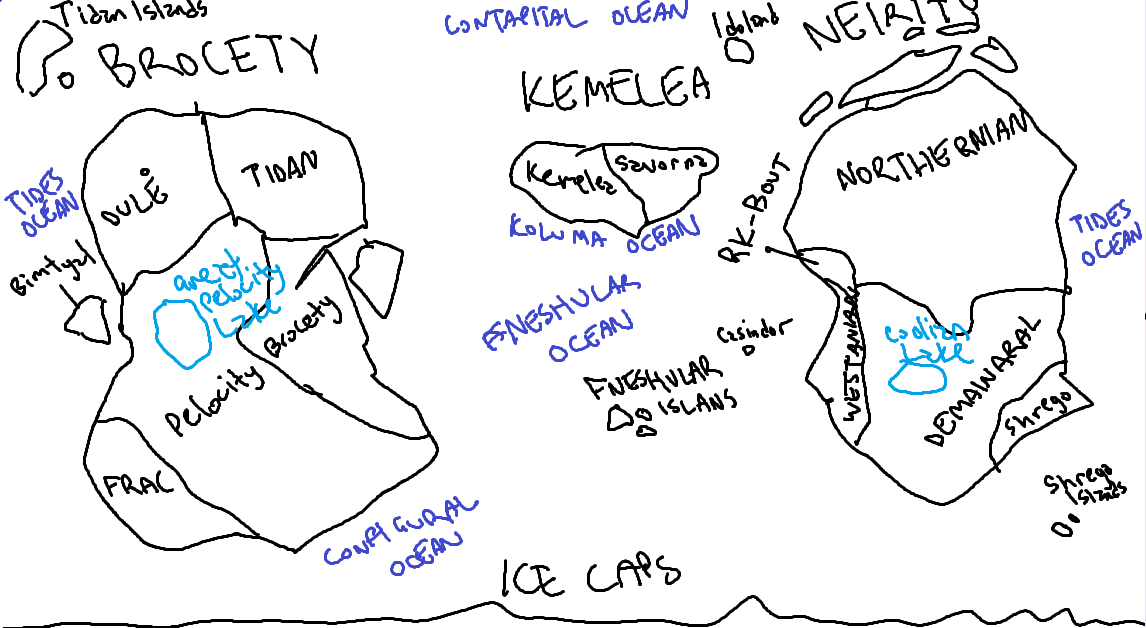 Tidan Islands
BROCETY
CONTAPITAL OCEAN
Idoland
NEIRITY
KEMELEA
DULĖ
TIDAN
Kemelea
Savorna
NORTHERNIAN
TIDES
OCEAN
KOLUMA OCEAN
RK-BOUT
TIDES
OCEAN
Bimtyal
pelocity
Lake
Brocety
FNESHULAR
OCEAN
Casindor
WESTANIARC
Lake
DEMAINARAL
Pelocity
FNESHULAR
ISLANS
Shrego
FRAC
Shrego
Islands
CONFIGURAL
OCEAN
ICE CAPS